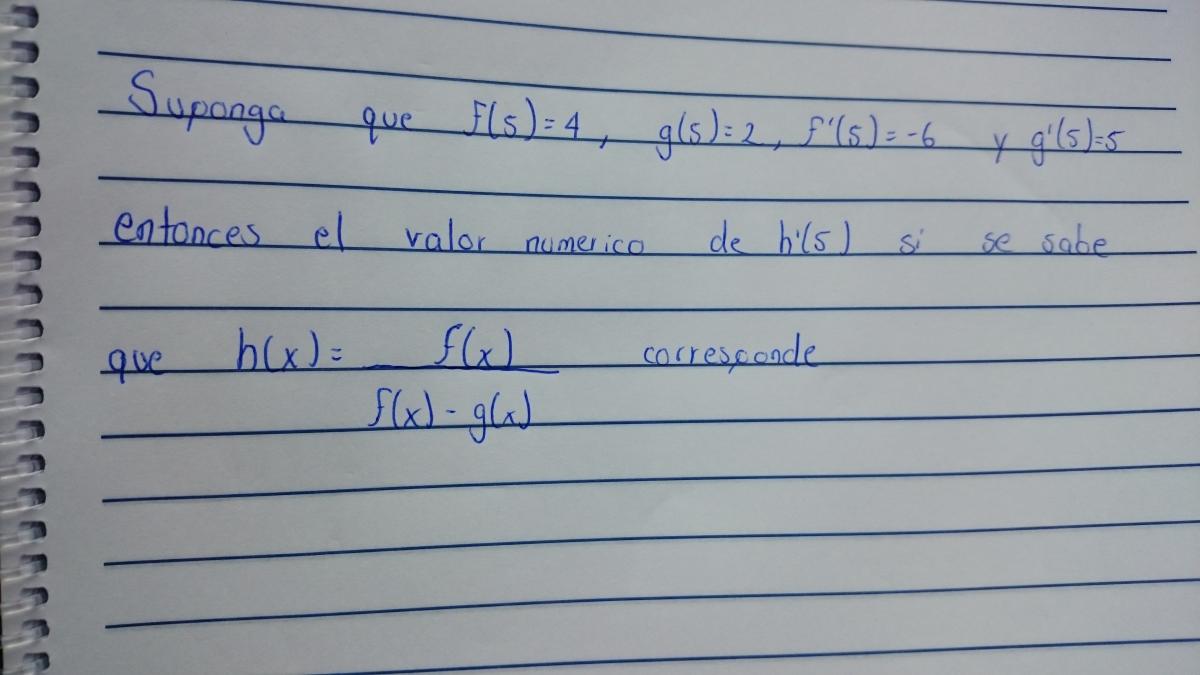 Suponga que f(5)=4, g(5)=2, f'(5)=-6 y g'(5)=5
entonces el valor numerico de h'(5) si se sabe
que h(x)= f(x) corresponde
f(x)-g(x)